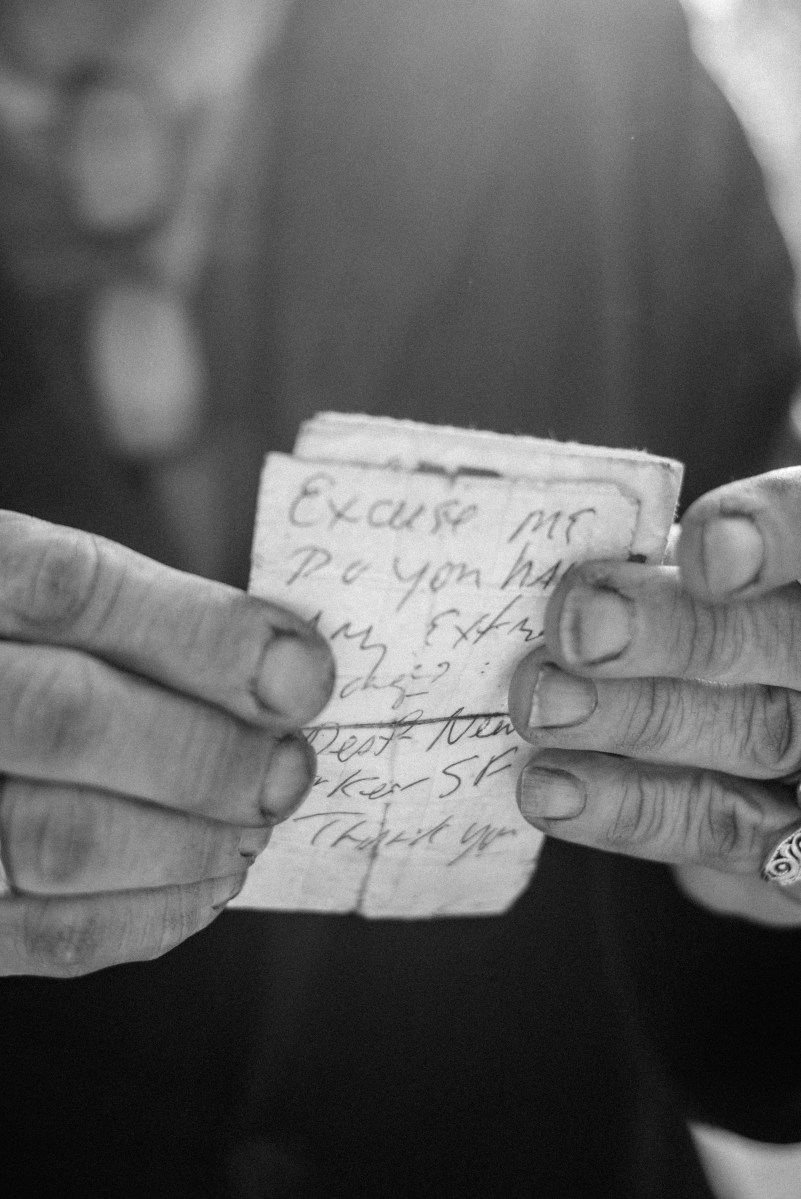 Excuse me
Do you ha
Any Extr
Deaf? New
SF
Thank you